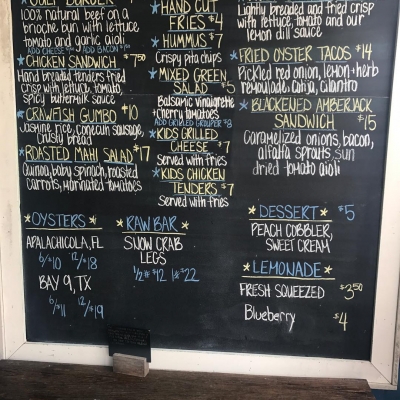 GULF BURGER
100% natural beef on a
brioche bun with lettuce
tomato and garlic aioli
ADD BACON
CHICKEN SANDWICH $7.50
Hand breaded tenders fried
crisp with lettuce, tomato,
spicy buttermilk sauce
CRAWFISH GUMBO $10
Jasmine rice, conecuh sausage,
crusty bread
ROASTED MAHI SALAD $17
Quinoa, baby spinach, roasted
carrots, marinated tomatoes
*OYSTERS*
APALACHICOLA, FL
6/$10 12/$18
BAY 9, TX
6/$11 12/$19
HAND CUT
FRIES $4
HUMMUS $7
Crispy pita chips
MIXED GREEN
SALAD $5
Balsamic vinaigrette
+cherry tomatoes
ADD GRILLED GROUPER $8
KIDS GRILLED
CHEESE $7
Served with fries
KIDS CHICKEN
TENDERS $7
Served with fries
*RAW BAR*
SNOW CRAB
LEGS
1/2# $12 1# $22
Lightly breaded and fried crisp
with lettuce, tomato and our
lemon dill sauce
FRIED OYSTER TACOS $14
Pickled red onion, lemon+herb
remoulade, cotija, cilantro
BLACKENED AMBERJACK
SANDWICH $15
Caramelized onions, bacon,
alfalfa sprouts, sun
dried tomato aioli
*DESSERT* $5
PEACH COBBLER,
SWEET CREAM
*LEMONADE*
FRESH SQUEEZED $3.50
Blueberry $4